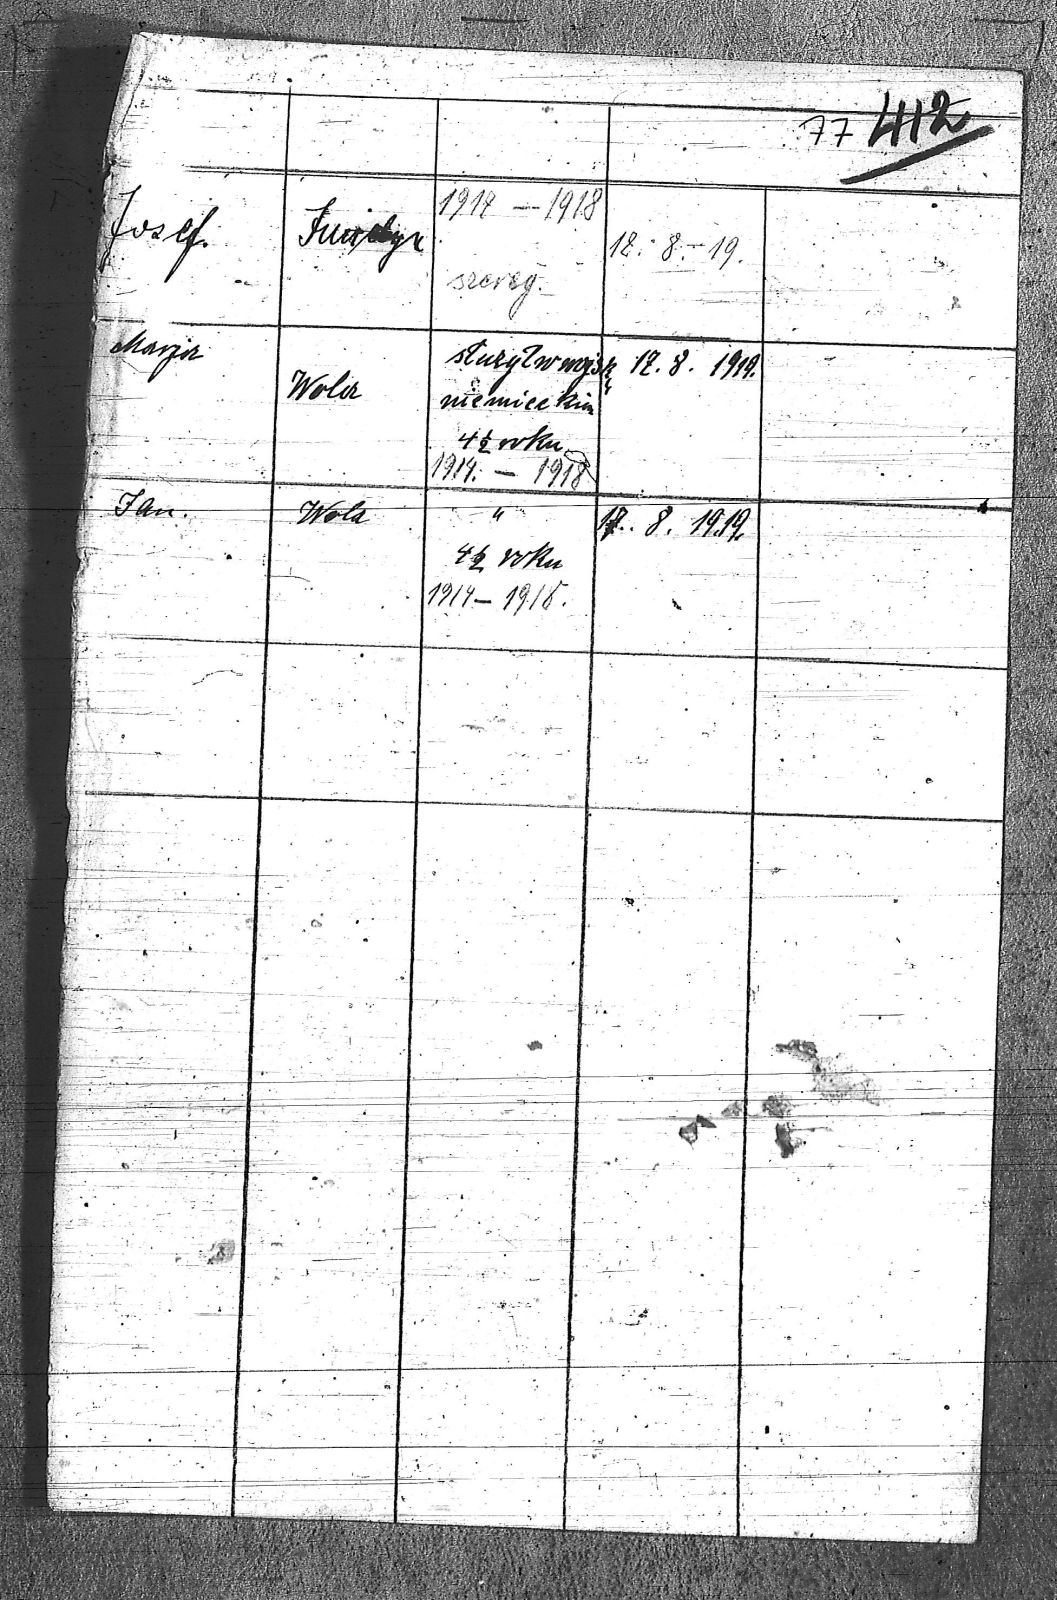 77 412
Josef.
1914 — 1918
szereg.
12. 8. - 19.
Marja
Wola
służył w wojsk
niemieckim
4½ roku
1914. — 1918
17. 8. 1919.
Jan.
Wola
"
4½ roku
1914 — 1918.
17. 8. 1919.